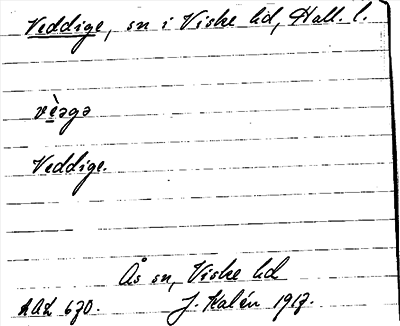 Veddige, sn i Viske hd, Hall. l.
vè̱əgə
Veddige.
Ås sn, Viske hd
AAL 670. J. Kalén 1917.